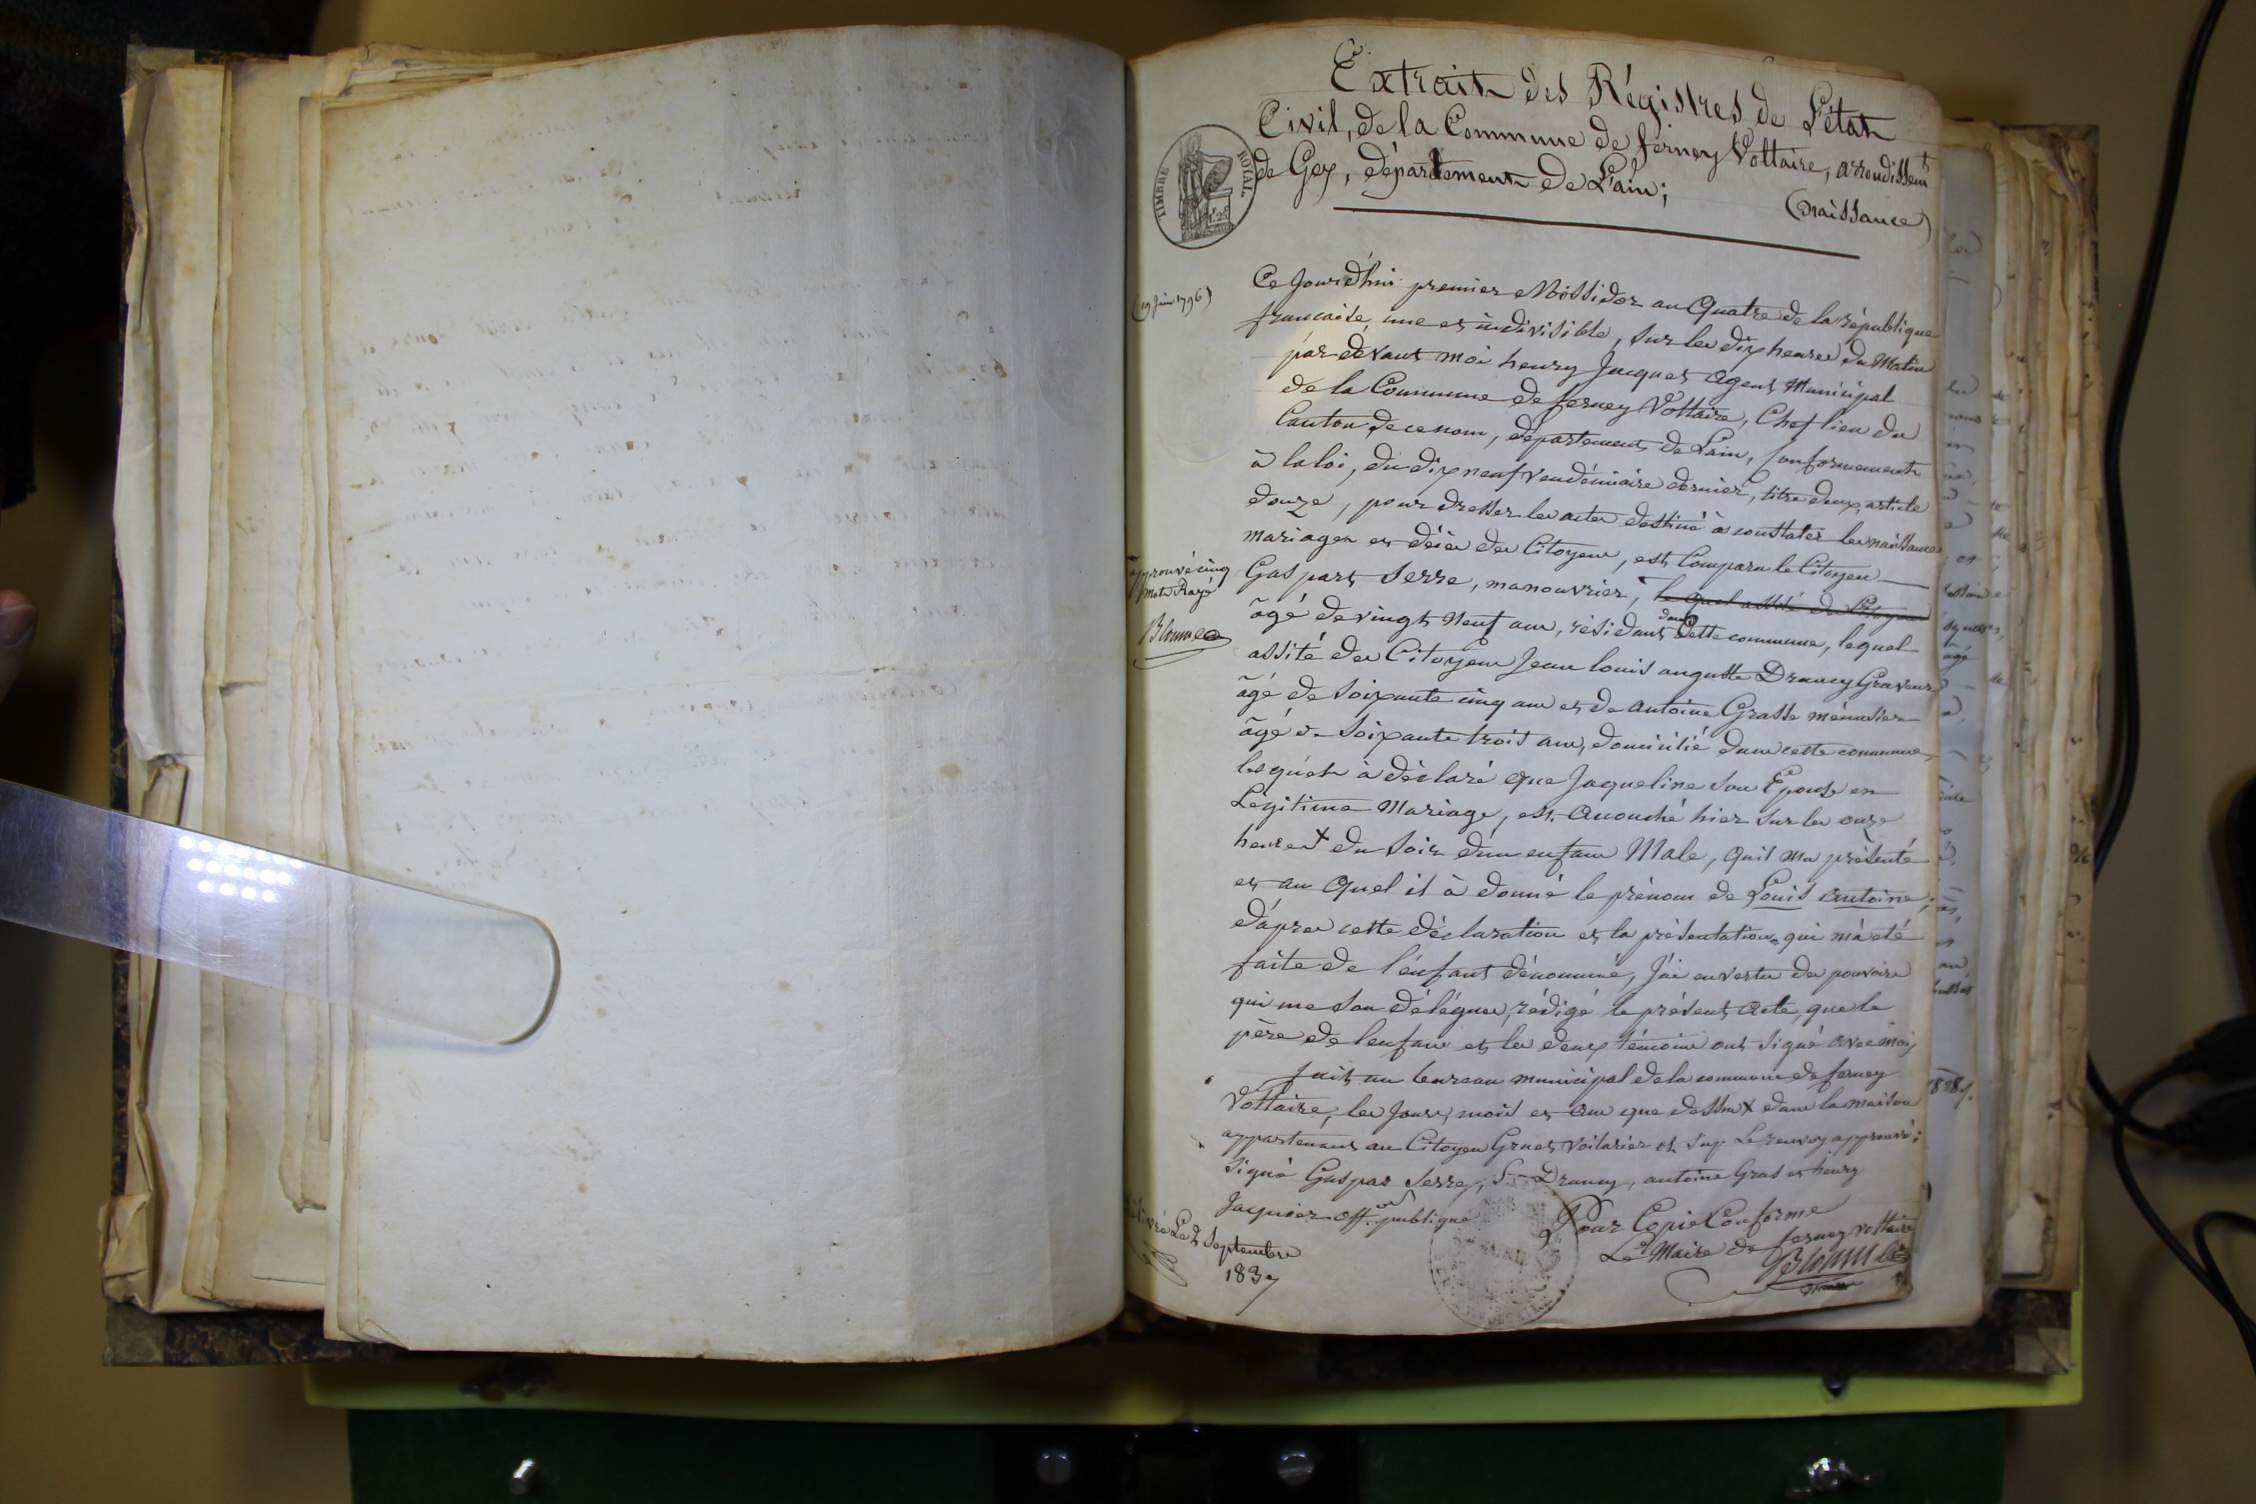 Extrait des Régistres de L'état
Civil, de la Commune de ferney Voltaire, arrondissemt
de Gex, département de L'ain;
(naissance)
TIMBRE ROYAL
(19 juin 1796)
Ce Jourd'hui premier Messidor an Quatre de la république
francaise une et indivisible, sur les dix heures du Matin
par devant moi henry Jacques Agent Municipal
de la Commune de ferney Voltaire, Chef lieu du
Canton, de ce nom, département de L'ain, conformement
à la loi, du dix neuf vendémiaire dernier, titre deux, article
douze, pour dresser les actes destiné à constater les naissances
mariages et décès des Citoyens, est Comparu le Citoyen
Gaspart Serre, manouvrier, le quel assité du Citoyen
approuvé cinq
mots Rayé
âgé de vingt Neuf ans, résidant dans Cette commune, lequel
assité des Citoyens Jean louis auguste Drancy Graveur
âgé de Soixante cinq ans et de Antoine Grasse ménusier
âgé de Soixante trois ans, domicilié dans cette commune,
lesquels à déclaré que Jaqueline son Epouse en
Légitime Mariage, est Accouché hier sur les onze
heures du soir d'un enfant Male, quil ma présenté
et au Quel il à donné le prénom de Louis Antoine;
d'apres cette déclaration et la présentation qui m'a été
faite de l'enfant dénommé, J'ai en vertu des pouvoirs
qui me son délégues, rédigé le présent Acte, que le
père de lenfant et les deux témoins ont signé avec moi,
fait au bureau municipal de la commune de ferney
Voltaire, les Jours, mois et Ans que dessus dans la maison
appartenant au Citoyen Gruet Voiturier Le renvoy approuvé;
Signé Gaspar Serre, Drancy, antoine Gras et henry
Jaquier off. publique
Pour Copie Conforme
Le Maire de ferney Voltaire
Le 2 Septembre
1837